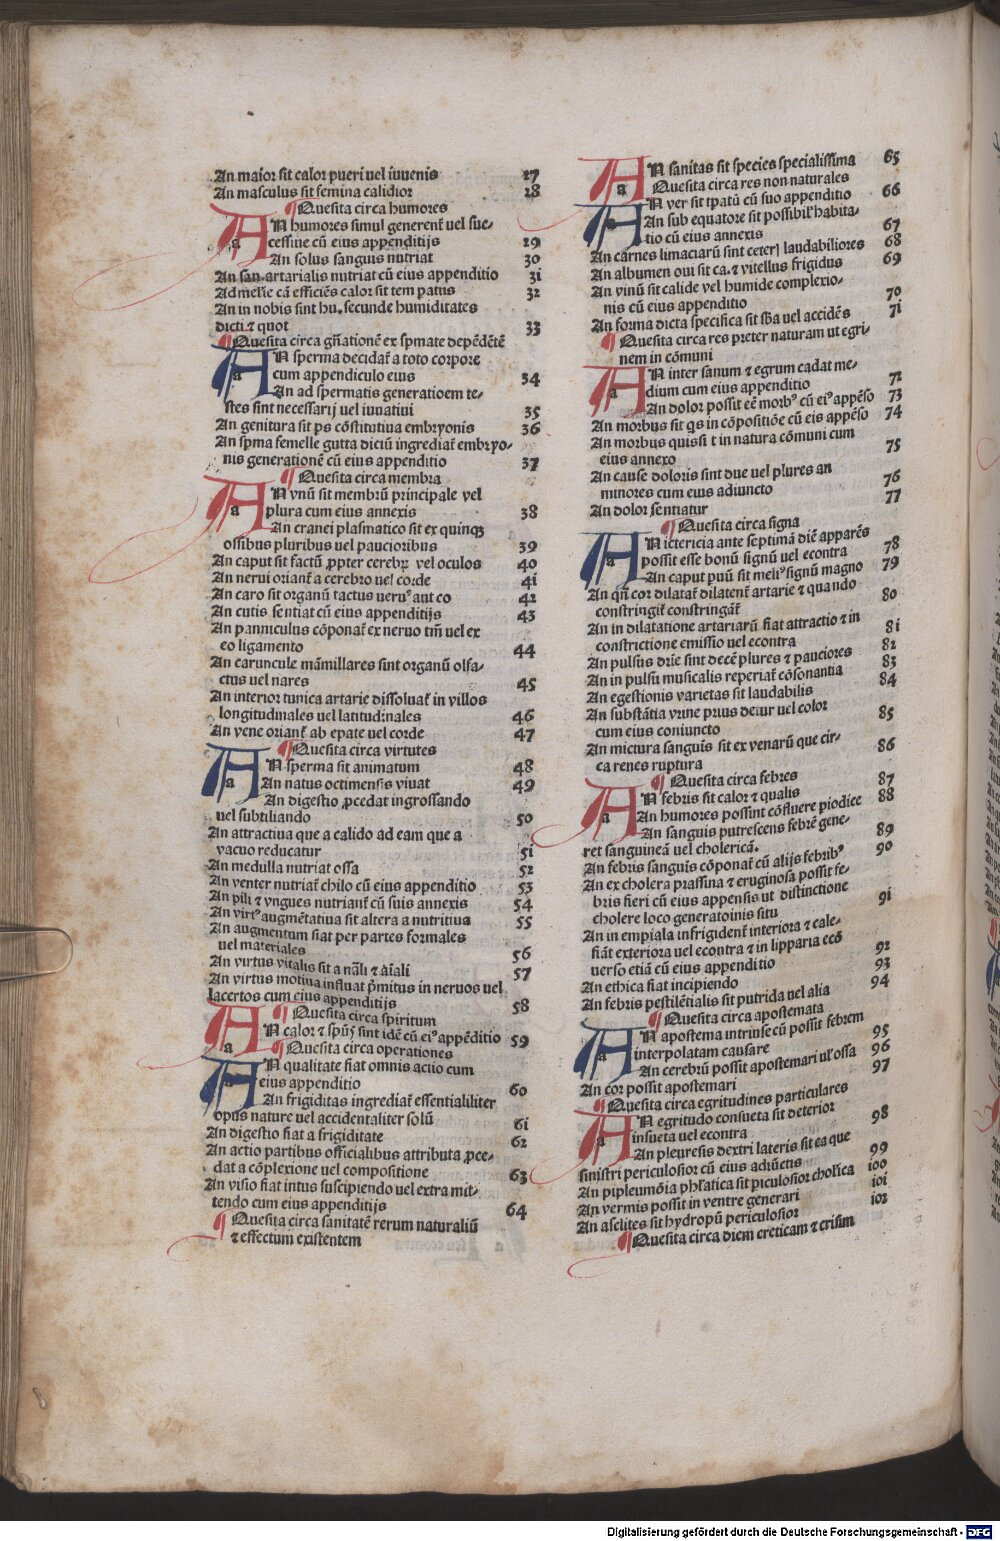 An maior sit calor pueri uel iuuenis 27
An masculus sit femina calidior 28
¶Quesita circa humores
AN humores simul generent᷑ uel suc⸗
cessiue cū eius appenditijs 29
An solus sanguis nutriat 30
An san. artarialis nutriat cū eius appenditio 3i
cā efficiēs calor sit tem patus 32
An in nobis sint hu. secunde humiditates
dicti ⁊ quot 33
¶Quesita circa gn̄ationē ex spmate depēdētē
AN sperma decidat᷑ a toto corpore
cum appendiculo eius 34
An ad spermatis generatioem te⸗
stes sint necessarij uel iuuatiui 35
An genitura sit ps cōstitutiua embryonis 36
An spma femelle gutta diciū ingrediat᷑ embryo⸗
nis generationē cū eius appenditio 37
¶Quesita circa membra
AN vnū sit membrū principale vel
plura cum eius annexis 38
An cranei plasmatico sit ex quinqꝫ
ossibus pluribus uel paucioribus 39
An caput sit factū ꝓpter cerebꝝ vel oculos 40
An nerui oriant᷑ a cerebro uel corde 4i
An caro sit organū tactus neruꝰ aut co 42
An cutis sentiat cū eius appenditijs 43
An panniculus cōponat᷑ ex neruo tm̄ uel ex
eo ligamento 44
An caruncule māmillares sint organū olfa⸗
ctus uel nares 45
An interior tunica artarie dissoluat᷑ in villos
longitudinales uel latitudinales 46
An vene oriant᷑ ab epate uel corde 47
¶Quesita circa virtutes
AN sperma sit animatum 48
An natus octimensis viuat 49
An digestio ꝓcedat ingrossando
uel subtiliando 50
An attractiua que a calido ad eam que a
vacuo reducatur 5i
An medulla nutriat ossa 52
An venter nutriat᷑ chilo cū eius appenditio 53
An pili ⁊ vngues nutriant᷑ cū suis annexis 54
An virtꝰ augmētatiua sit altera a nutritiua 55
An augmentum fiat per partes formales
uel materiales 56
An virtus vitalis sit a nāli ⁊ aīali 57
An virtus motiua influat p̄mitus in neruos uel
lacertos cum eius appenditijs 58
¶Quesita circa spiritum
AN calor ⁊ spūs sint idē cū eiꝰ appēditio 59
¶Quesita circa operationes
AN qualitate fiat omnis actio cum
eius appenditio 60
An frigiditas ingrediat᷑ essentialiliter
opus nature uel accidentaliter solū 6i
An digestio fiat a frigiditate 62
An actio partibus officialibus attributa ꝓce⸗
dat a cōplexione uel compositione 63
An visio fiat intus suscipiendo uel extra mit⸗
tendo cum eius appenditijs 64
¶Quesita circa sanitatē rerum naturaliū
⁊ effectum existentem
AN sanitas sit species specialissima 65
Quesita circa res non naturales
AN ver sit tpatū cū suo appenditio 66
An sub equatore sit possibil' habita⸗
tio cū eius annexis 67
An carnes limaciarū sint ceterꝭ laudabiliores 68
An albumen oui sit ca. ⁊ vitellus frigidus 69
An vinū sit calide vel humide complexio⸗
nis cū eius appenditio 70
An forma dicta specifica sit sb̄a uel accidēs 7i
¶Quesita circa res preter naturam ut egri⸗
nem in cōmuni
AN inter sanum ⁊ egrum cadat me⸗
dium cum eius appenditio 72
An dolor possit eē morbꝰ cū eiꝰ appēso 73
An morbus sit qs in cōpositiōe cū eis appēso 74
An morbus quissi t in natura cōmuni cum
eius annexo 75
An cause doloris sint due uel plures an
minores cum eius adiuncto 76
An dolor sentiatur 77
¶Quesita circa signa
AN ictericia ante septimā diē apparēs
possit esse bonū signū uel econtra 78
An caput puū sit meliꝰ signū magno 79
An qn̄ cor dilatat᷑ dilatent᷑ artarie ⁊ quando
constringit᷑ constringāt᷑ 80
An in dilatatione artariarū fiat attractio ⁊ in
constrictione emissio uel econtra 8i
An pulsus drīe sint decē plures ⁊ pauciores 82
An in pulsu musicalis reperiat᷑ cōsonantia 83
An egestionis varietas sit laudabilis 84
An substātia vrine prius detur uel color
cum eius coniuncto 85
An mictura sanguis sit ex venarū que cir⸗
ca renes ruptura 86
¶Quesita circa febres
AN febris sit calor ⁊ qualis 87
An humores possint cōfluere piodice 88
An sanguis putrescens febrē gene⸗
ret sanguineā uel cholericā. 89
An febris sanguis cōponat᷑ cū alijs febribꝰ 90
An ex cholera prassina ⁊ eruginosa possit fe⸗
bris fieri cū eius appensis ut distinctione
cholere loco generatoinis situ 9i
An in empiala infrigident᷑ interiora ⁊ cale⸗
fiāt exteriora uel econtra ⁊ in lipparia ecō
uerso etiā cū eius appenditio 92
An ethica fiat incipiendo 93
An febris pestilētialis sit putrida uel alia 94
¶Quesita circa apostemata
AN apostema intrinsecū possit febrem
interpolatam causare 95
An cerebrū possit apostemari ul' ossa 96
An cor possit apostemari 97
¶Quesita circa egritudines particulares
AN egritudo consueta sit deterior
insueta uel econtra 98
An pleuresis dextri lateris sit ea que
sinistri periculosior cū eius adiūctis 99
An pipleumōia phl'atica sit piculosior chol'ica i00
An vermis possit in ventre generari i0i
An asclites sit hydropū periculosior i02
¶Quesita circa diem creticam ⁊ crisim
Digitalisierung gefördert durch die Deutsche Forschungsgemeinschaft - DFG